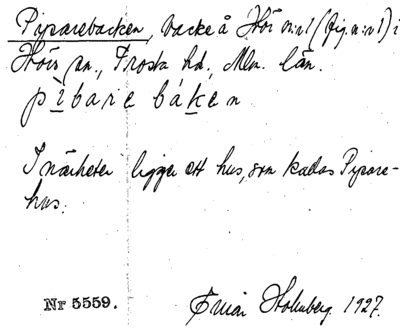 Piparebacken, backe å Höör n:r 1 (fig. n:r 1) i
Höörs sn., Frosta hd., Mlm. län.
pìbare báken
I närheten ligger ett hus, som kallas Pipare-
hus.
Nr 5559.
Holmberg. 1927.